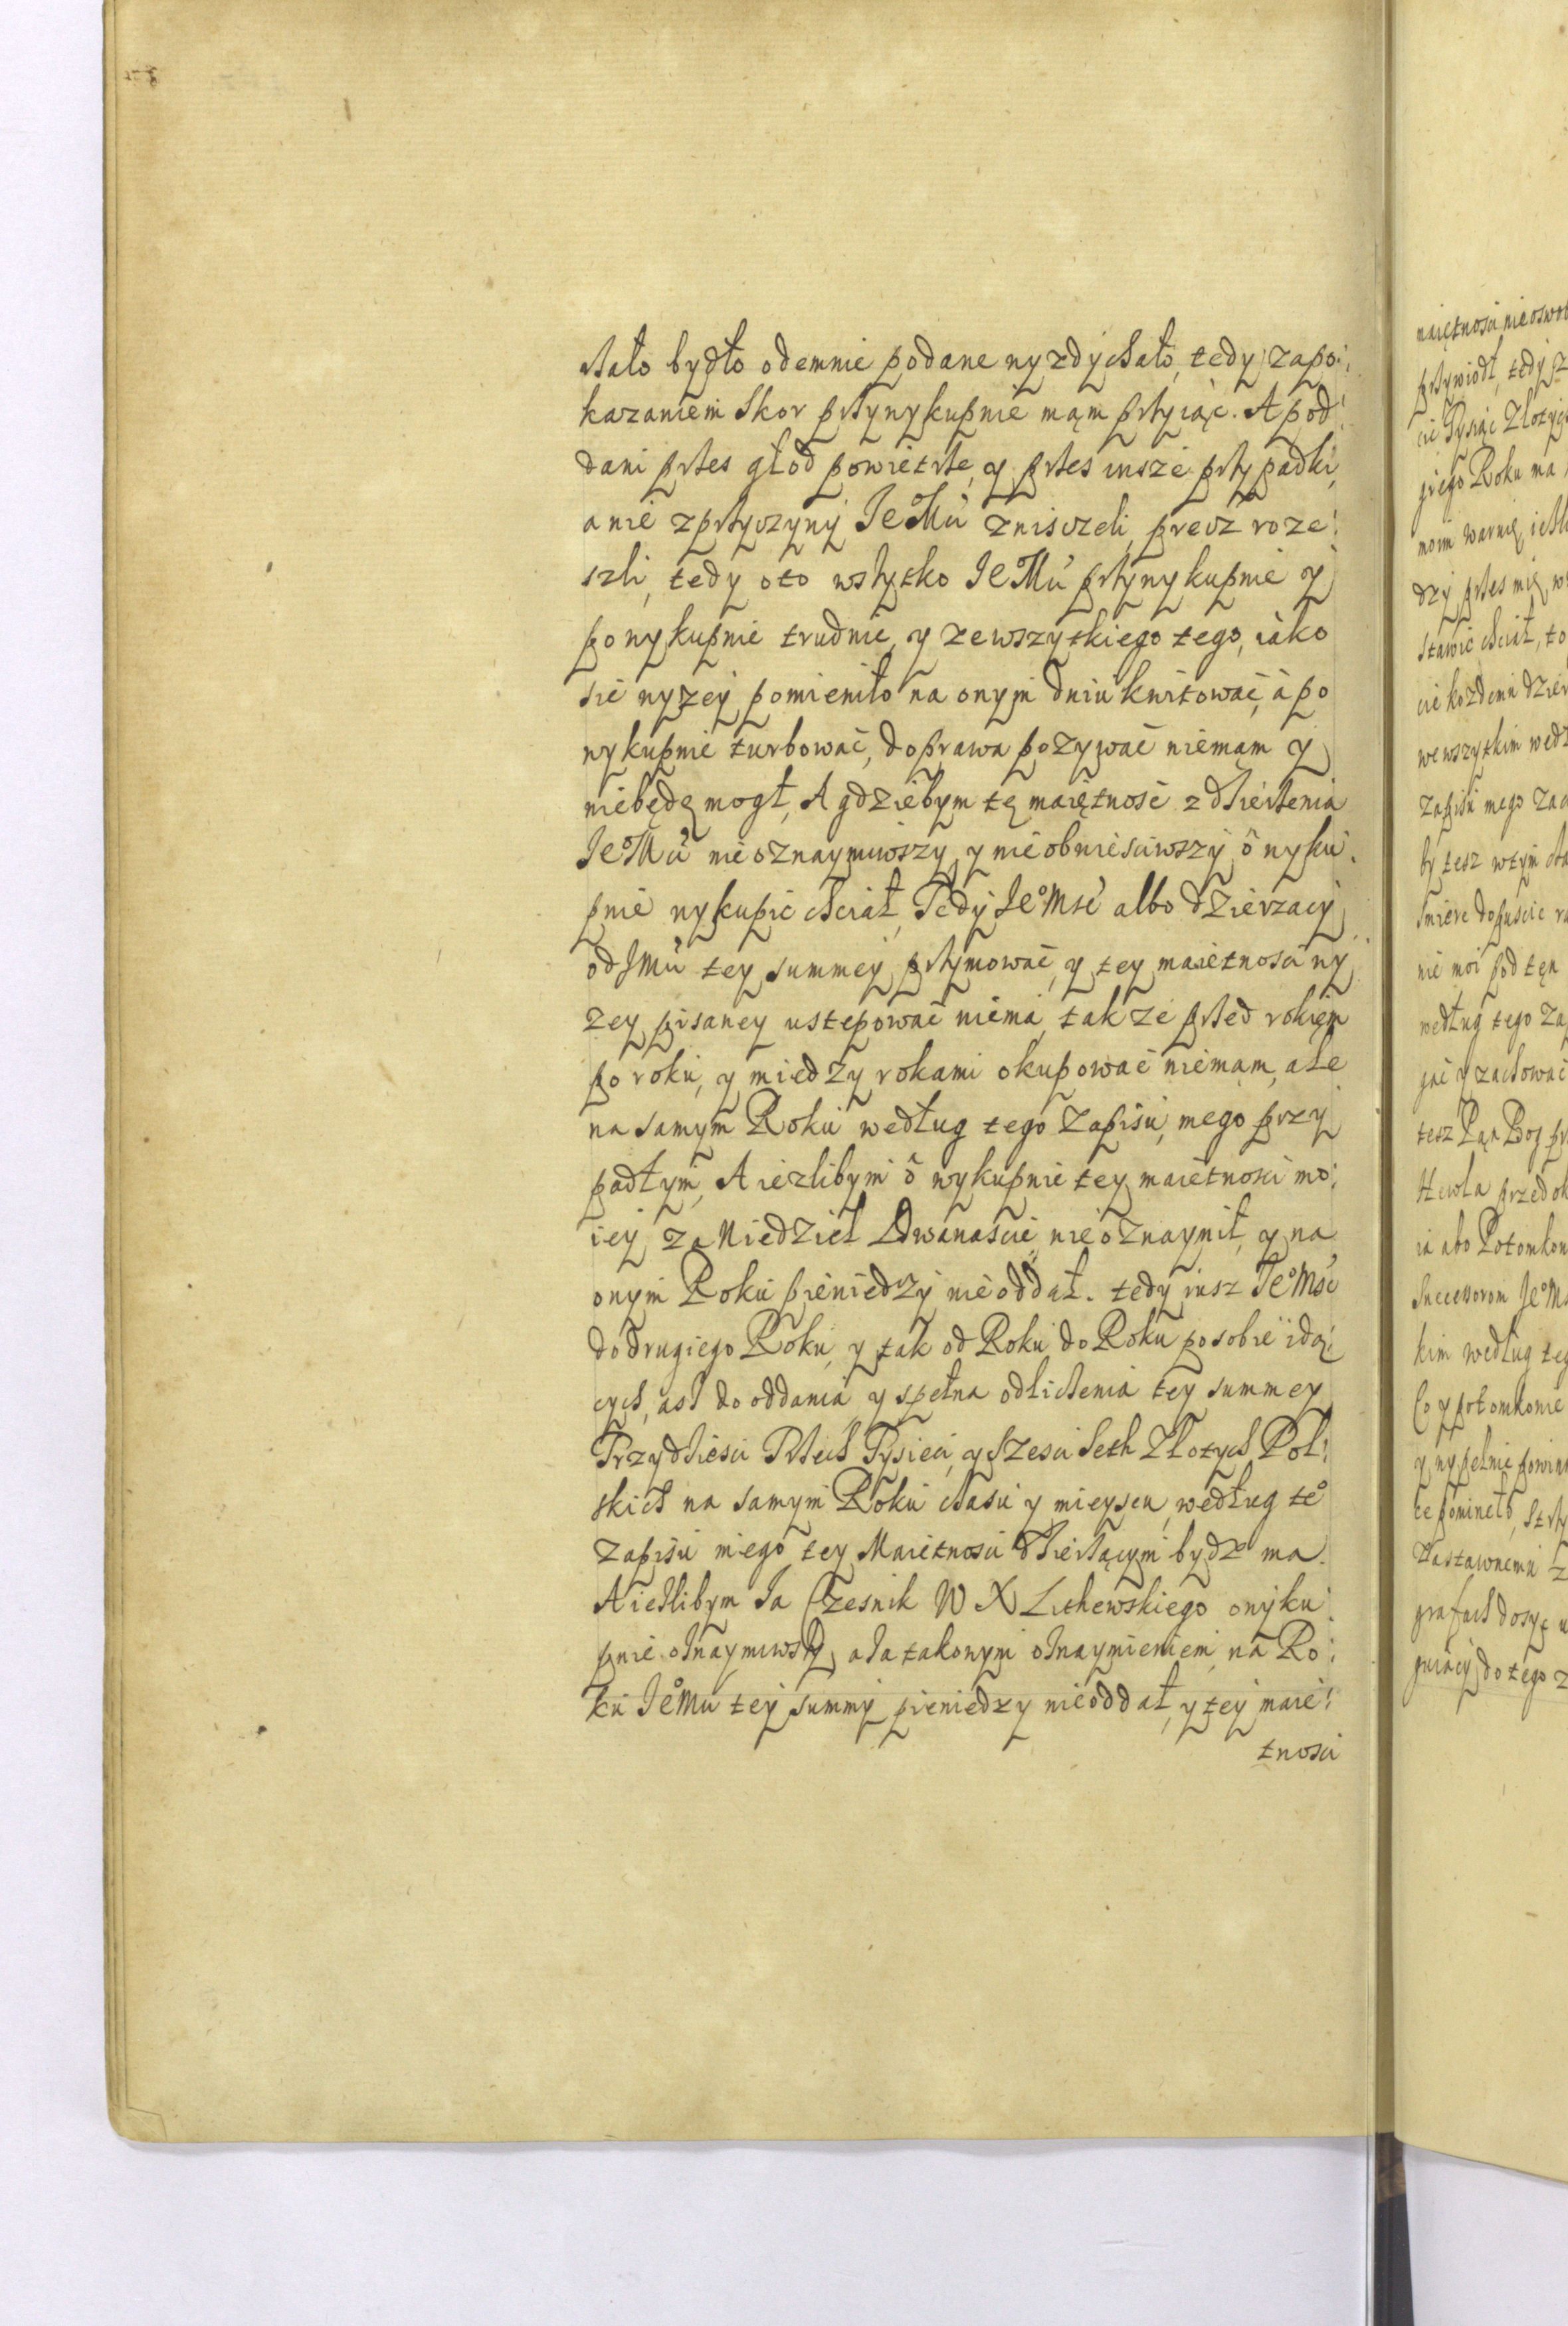 stało bydło odemnie podane wyzdychało, tedy zapo:
kazaniem skor przywykupnie mąm przyiąć. A pod:
dani przes głod powietrze, y przes insze przypadki,
anie zprzyczyny JeMu zniszczeli, precz roze:
szli, tedy oto wszytko JeMu przywykupnie y
powykupnie trudnic, y zewszytkiego tego, iako
sie wyzey pomieniło na onym dniu kwitować, a po
wykupnie turbować, doprawa pozywać niemąm y
niebędę mogł, A gdziebym tę maiętnosc zdzierzenia
JeMu nieoznaymiwszy y nieobwiesciwszy o wyku:
pnie wykupic chciał, Tedy JeoMsc albo dzierzacy
od JMu tey summey przymować, y tey maietnosci wy
zey pisaney ustepować niema, takze przed rokiem
po roku, y miedzy rokami okupować niemąm, ale
na samym Roku według tego Zapisu, mego przy
padłym, A iezlibym o wykupnie tey maietnosci mo:
iey za Niedziel Dwanascie nieoznaymił, y na
onym Roku pieniedzy nieoddał. tedy iusz JeoMsc
do drugiego Roku, y tak od Roku do Roku posobie idą:
cych, asz do oddania y spełna odliczenia tey summey
Trzydziesci Trzech Tysieci, y szesci seth Złotych Pol:
skich na samym Roku czasu y mieyscu, według teo
zapisu miego tey Maietnosci dzierzącym bydz ma.
A iezlibym Ja Czesnik W X Lithewskiego owyku:
pnie oznaymiwszy, a za takowym oznaymieniem, na Ro:
ku JeoMu tey summy pieniedzy nieoddał, y tey maie:
tnosci
maiętnosci nieoswob
przywiodł, tedy
cie Tysiąc Złotych
giego Roku ma
moim warnię
dzy przes mię
stawic chciał, to
cie kozdemu dzier
wewszytkim wedł
zapisu mego
by tesz wtym
smierc dopuscic
nie moi pod tęn
według tego
y zachować
tesz Pąn Bog
przed
ia abo Potomkow
Successorom JeoM
kim według teg
Co y potomkowie
y wypełnic powin
pomineło,
Zastawnemu
grafach dosyc
do tego